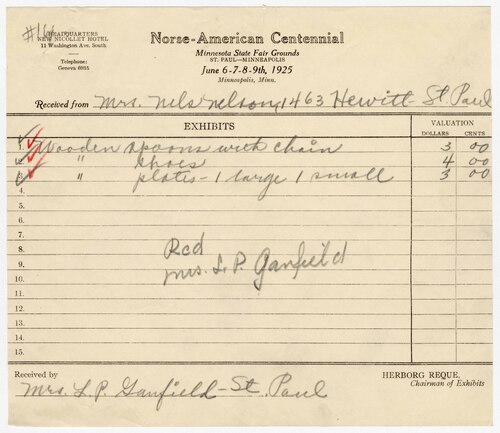 #166
HEADQUARTERS
NEW NICOLLET HOTEL
11 Washington Ave. South
Telephone:
Geneva 6955
Norse-American Centennial
Minnesota State Fair Grounds
ST. PAUL—MINNEAPOLIS
June 6-7-8-9th, 1925
Minneapolis, Minn.
Received from Mrs. Nels Nelson, 1463 Hewitt - St. Paul
EXHIBITS
VALUATION
DOLLARS CENTS
1. Wooden spoons with chain 3 00
2. " shoes 4 00
3. " plates - 1 large 1 small 3 00
4.
5.
6.
7.
8. Rcd
9. Mrs. L. P. Ganfield
10.
11.
12.
13.
14.
15.
Received by
HERBORG REQUE,
Chairman of Exhibits
Mrs. L. P. Ganfield - St. Paul